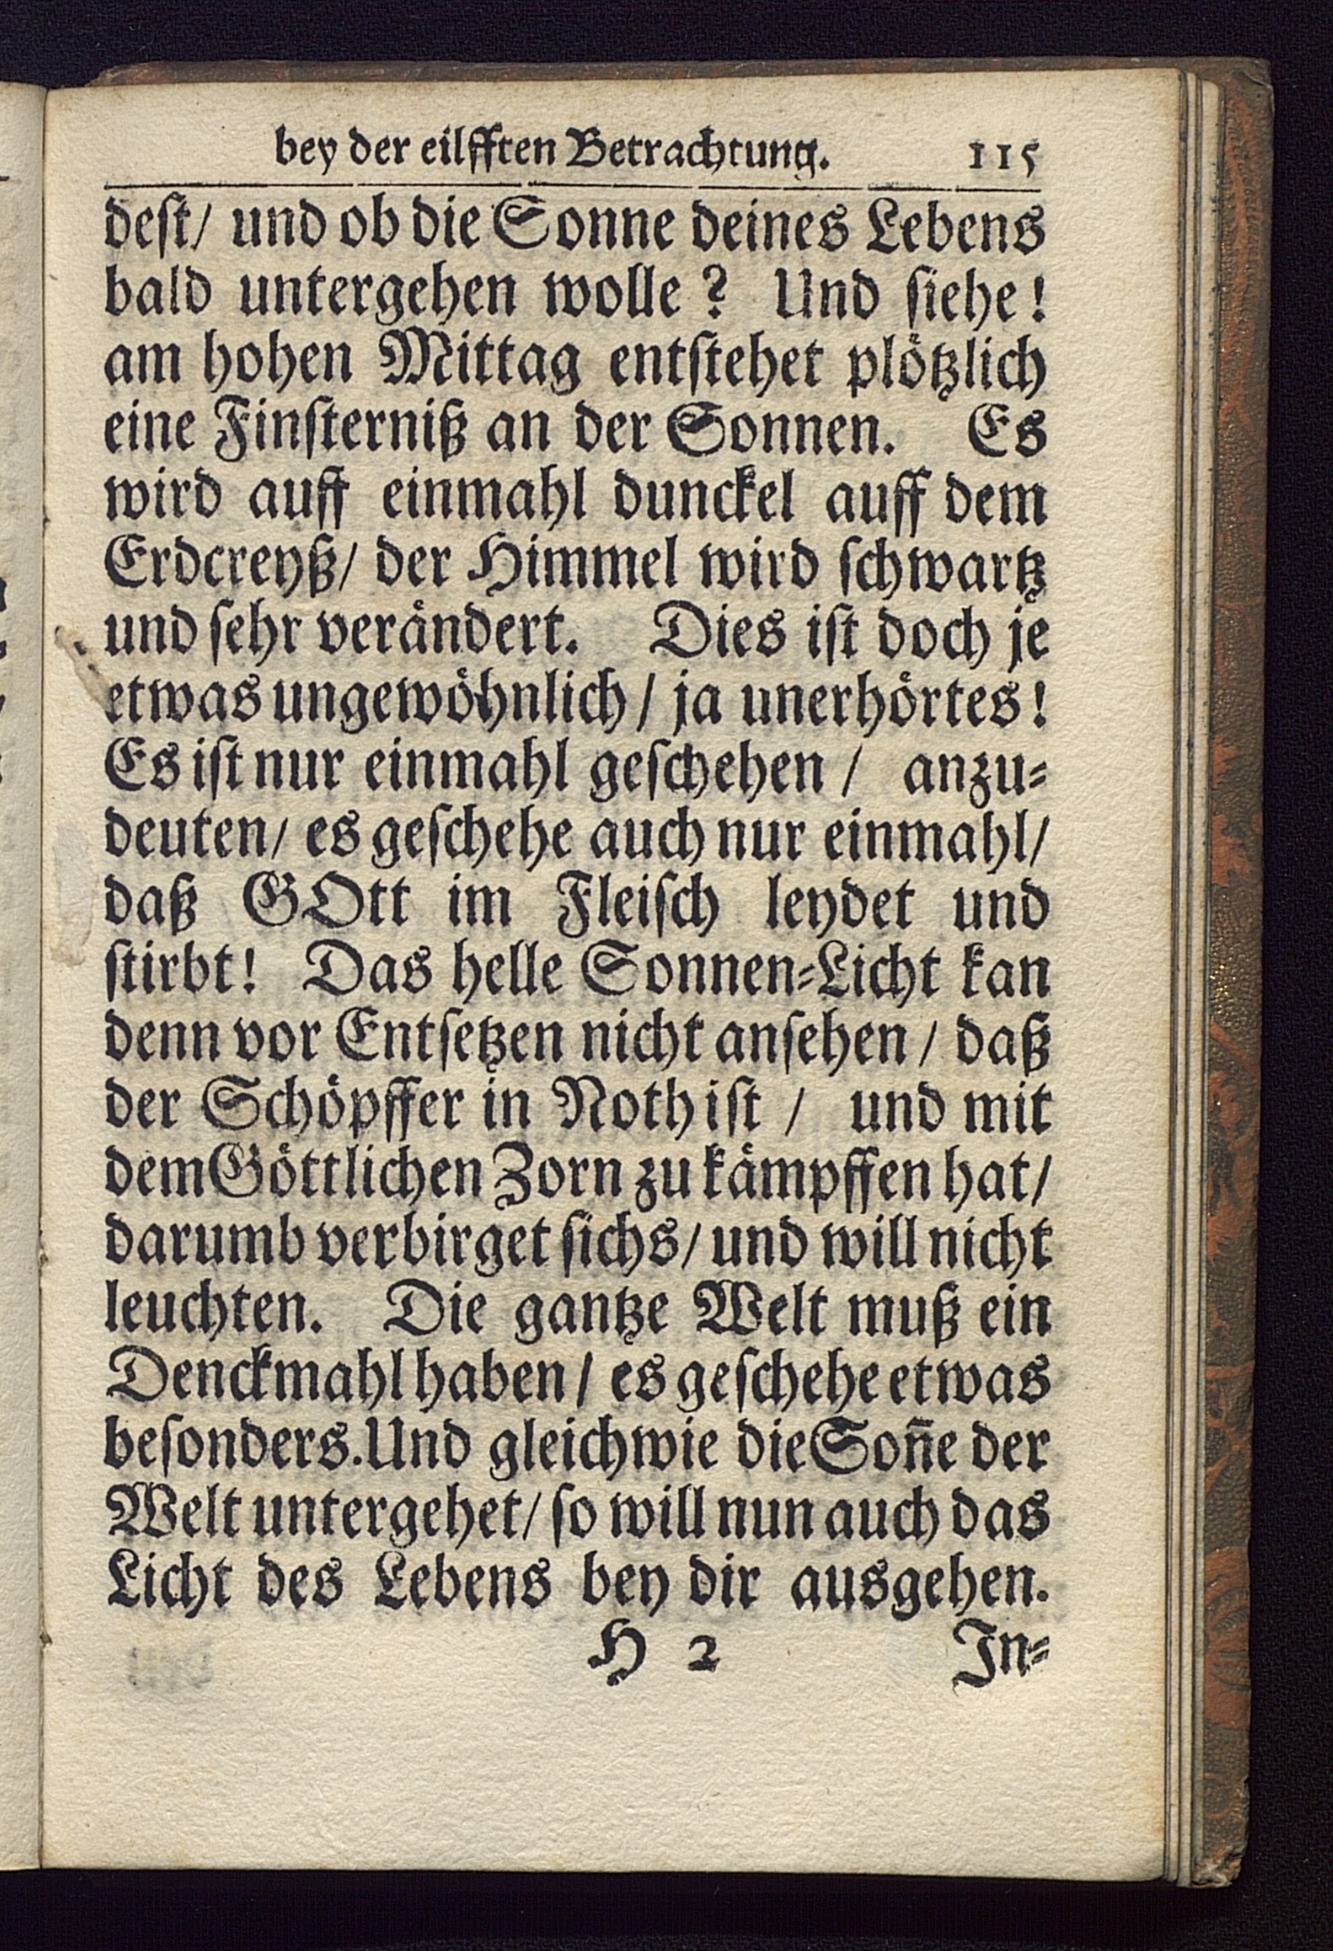 bey der eilfften Betrachtung. 115
deſt/ und ob die Sonne deines Lebens
bald untergehen wolle? Und ſiehe!
am hohen Mittag entſtehet plötzlich
eine Finſterniß an der Sonnen. Es
wird auff einmahl dunckel auff dem
Erdcreyß/ der Himmel wird ſchwartz
und ſehr verändert. Dies iſt doch je
etwas ungewöhnlich/ ja unerhörtes!
Es iſt nur einmahl geſchehen/ anzu⸗
deuten/ es geſchehe auch nur einmahl/
daß GOtt im Fleiſch leydet und
ſtirbt! Das helle Sonnen⸗Licht kan
denn vor Entſetzen nicht anſehen/ daß
der Schöpffer in Noth iſt/ und mit
dem Göttlichen Zorn zu kämpffen hat/
darumb verbirget ſichs/ und will nicht
leuchten. Die gantze Welt muß ein
Denckmahl haben/ es geſchehe etwas
beſonders. Und gleichwie die Son̅e der
Welt untergehet/ ſo will nun auch das
Licht des Lebens bey dir ausgehen.
H 2 In⸗